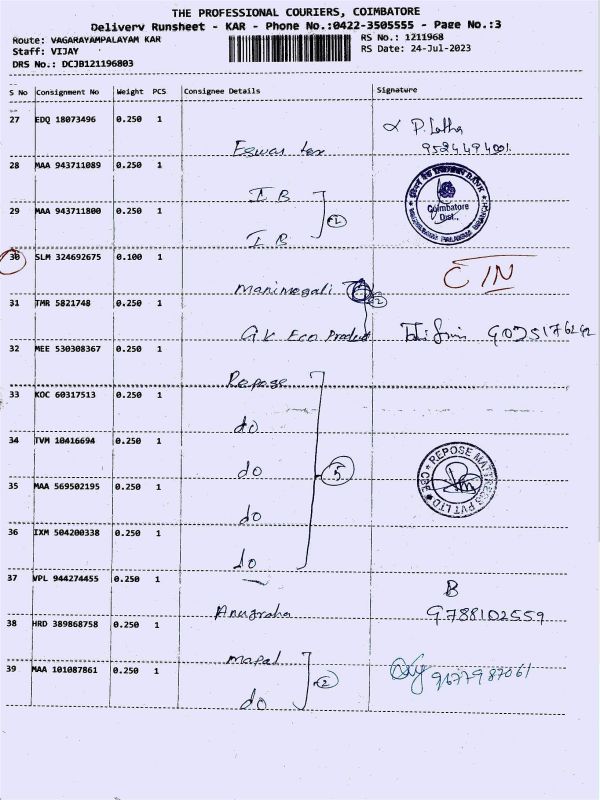 THE PROFESSIONAL COURIERS, COIMBATORE
Delivery Runsheet - KAR - Phone No.:0422-3505555 - Page No.:3
Route: VAGARAYAMPALAYAM KAR
RS No.: 1211968
Staff: VIJAY
RS Date: 24-Jul-2023
DRS No.: DCJB121196803
S No Consignment No Weight PCS Consignee Details Signature
27 EDQ 18073496 0.250 1
P. Latha
Eswar tex 9524494001
28 MAA 943711089 0.250 1
IB
Coimbatore
Dist.,
29 MAA 943711800 0.250 1
IB
30 SLM 324692675 0.100 1
CIN
Manimegali
31 TMR 5821748 0.250 1
GK Eco Product
32 MEE 530308367 0.250 1
Repose
33 KOC 60317513 0.250 1
do
34 TVM 10416694 0.250 1
do 5
REPOSE MATTRESS PVT LTD CBE
35 MAA 569502195 0.250 1
do
36 IXM 504200338 0.250 1
do
37 VPL 944274455 0.250 1
B
Anugraha 9788102559
38 HRD 389868758 0.250 1
mapal
39 MAA 101087861 0.250 1
2 9677987061
do